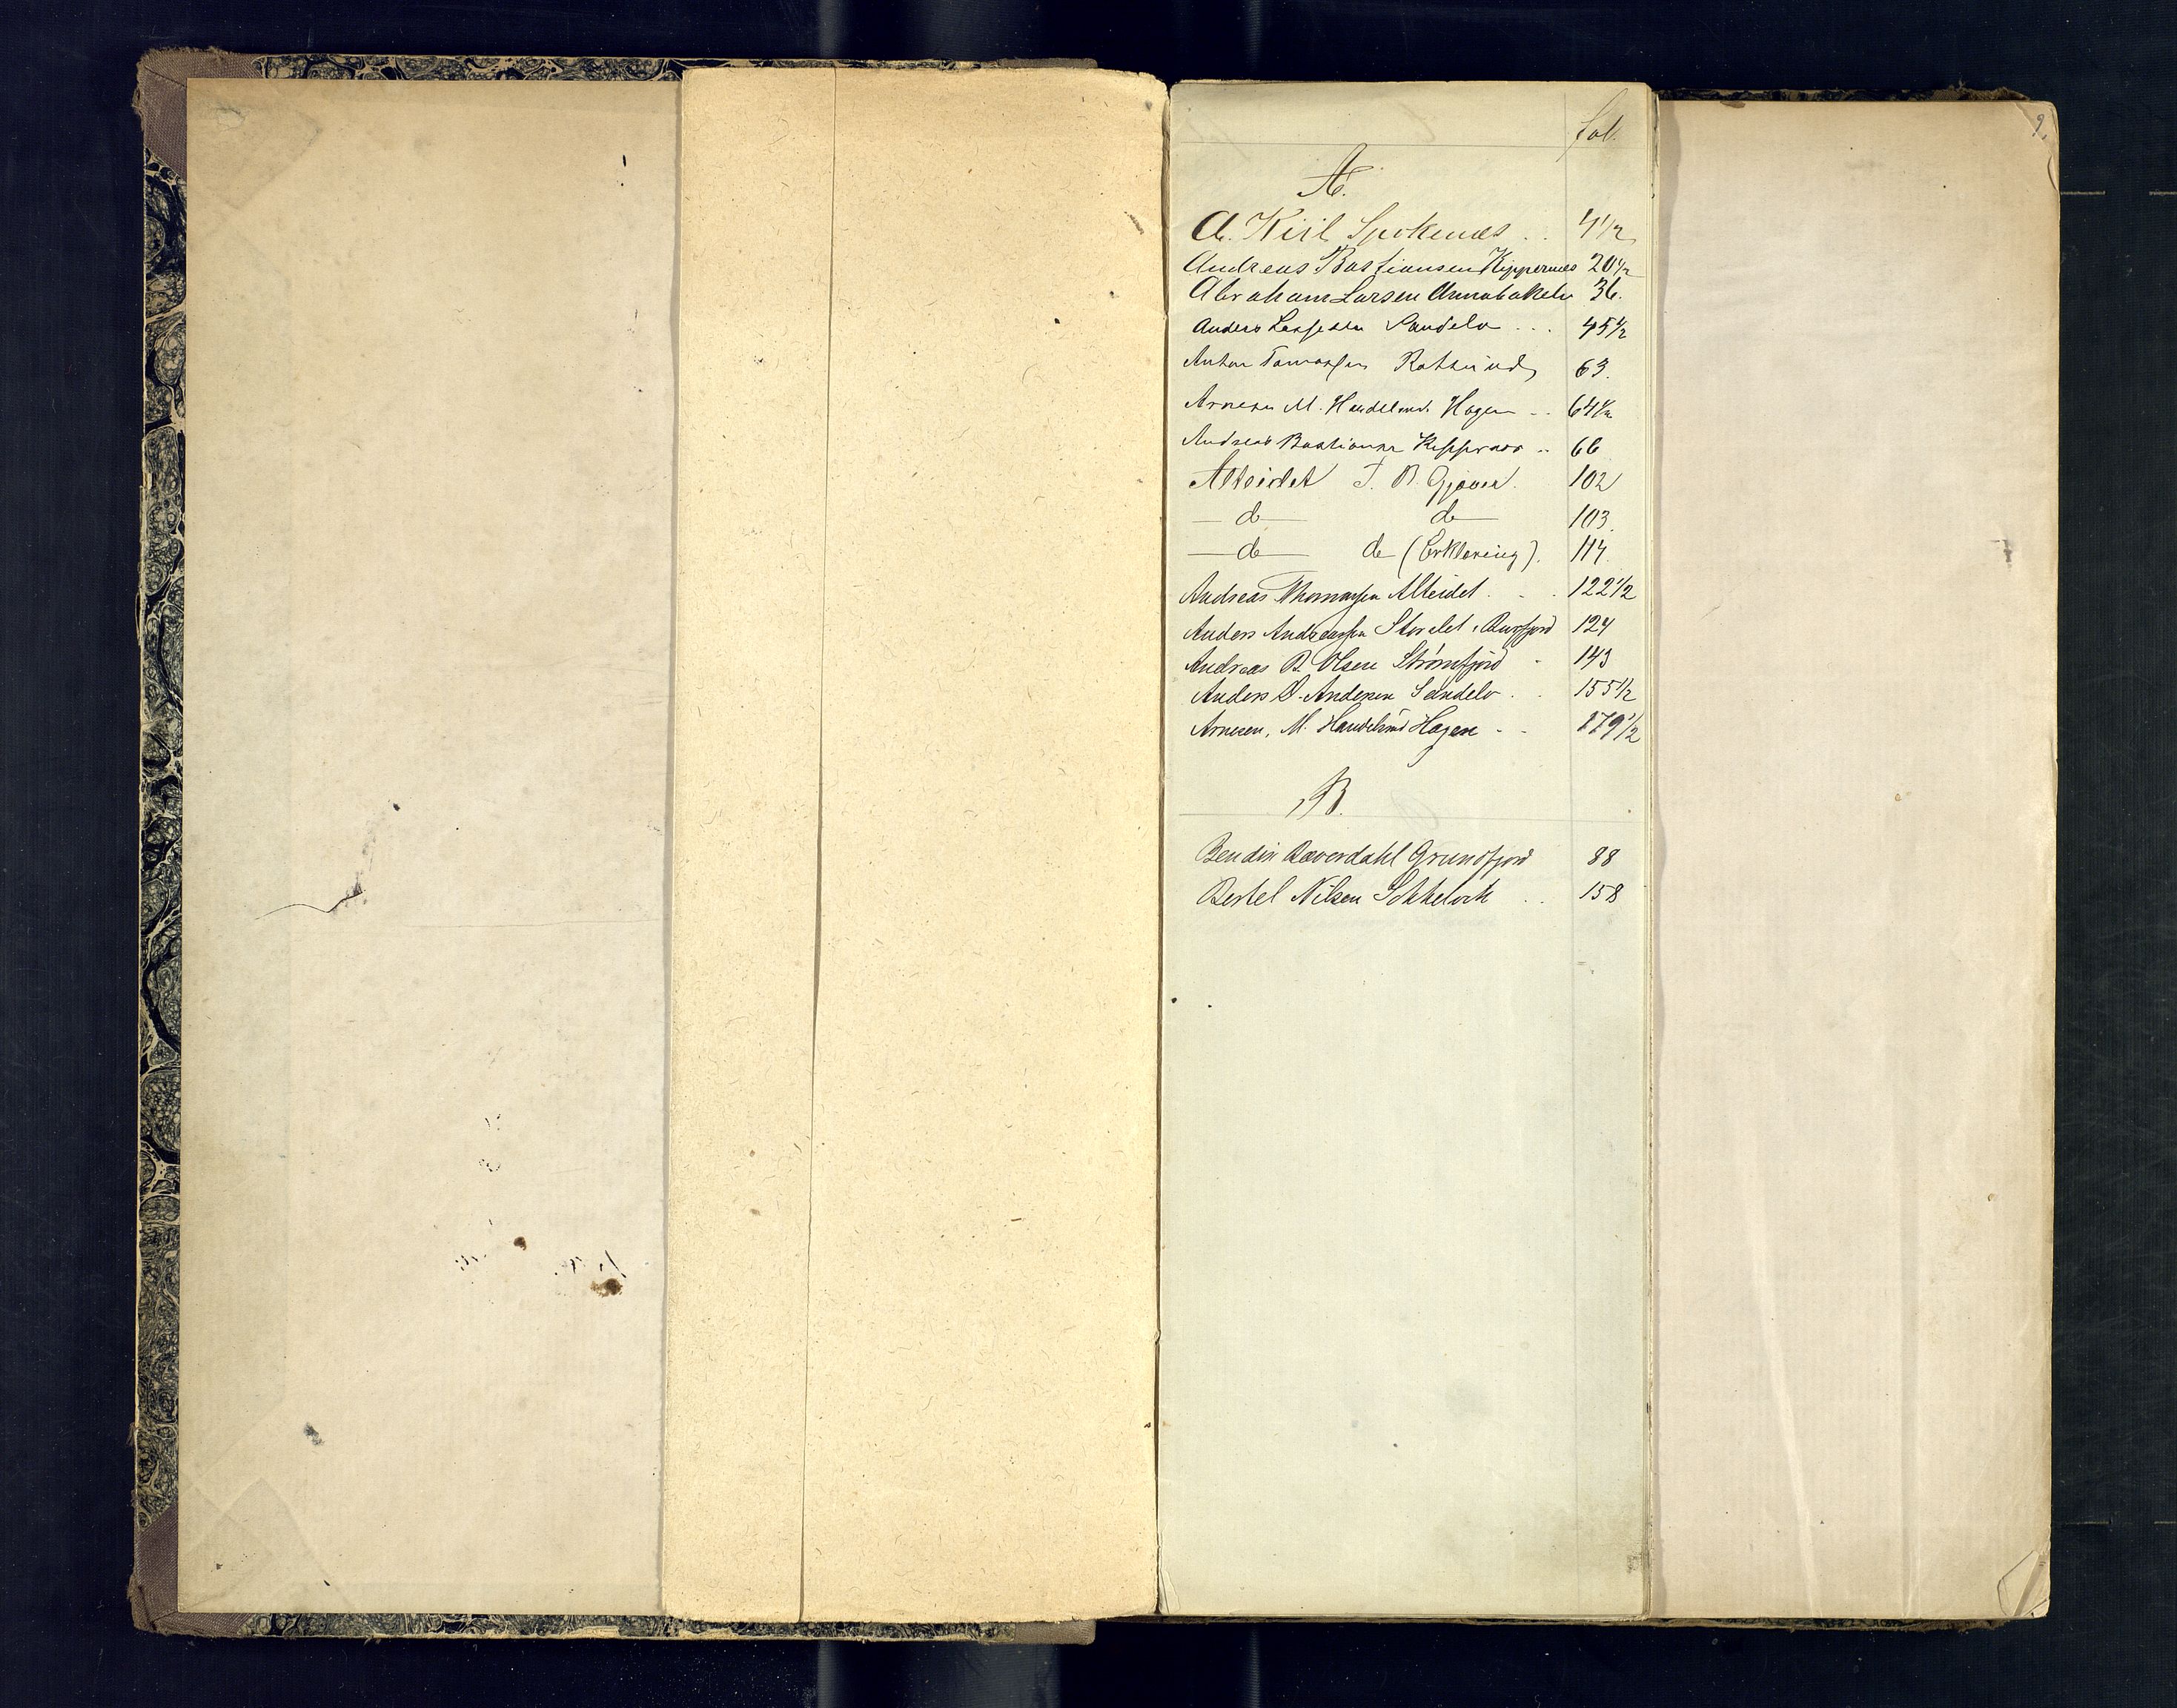 fol.
A.
A. Kiil Spokenæs . . 4 1/2
Andreas Bastiansen Kippernæs 20 1/2
Abraham Larsen Annabakelv 36.
Anders Larssen Sandelv . . . 45 1/2
Anton Tomassen Rotsund 63.
Arnesen M. Handelsmd. Hagen . . 64 1/2
Andreas Bastiansen Kippernæs . . 66
Alteidet J. B. Gjæver. 102
— do — do — 103.
— do — do (Erklæring). 114.
Andreas Thomassen Alteidet . . . 122 1/2
Anders Andreassen Storslet, Burfjord 124
Andreas B. Olsen Strømfjord - 143
Anders O. Andersen Sandelv . . 155 1/2
Arnesen, M. Handelsmd Hagen - - 179 1/2
B.
Bendix Røverdahl Grundfjord 88
Bertel Nilsen Sokkelvik . . 158
9.